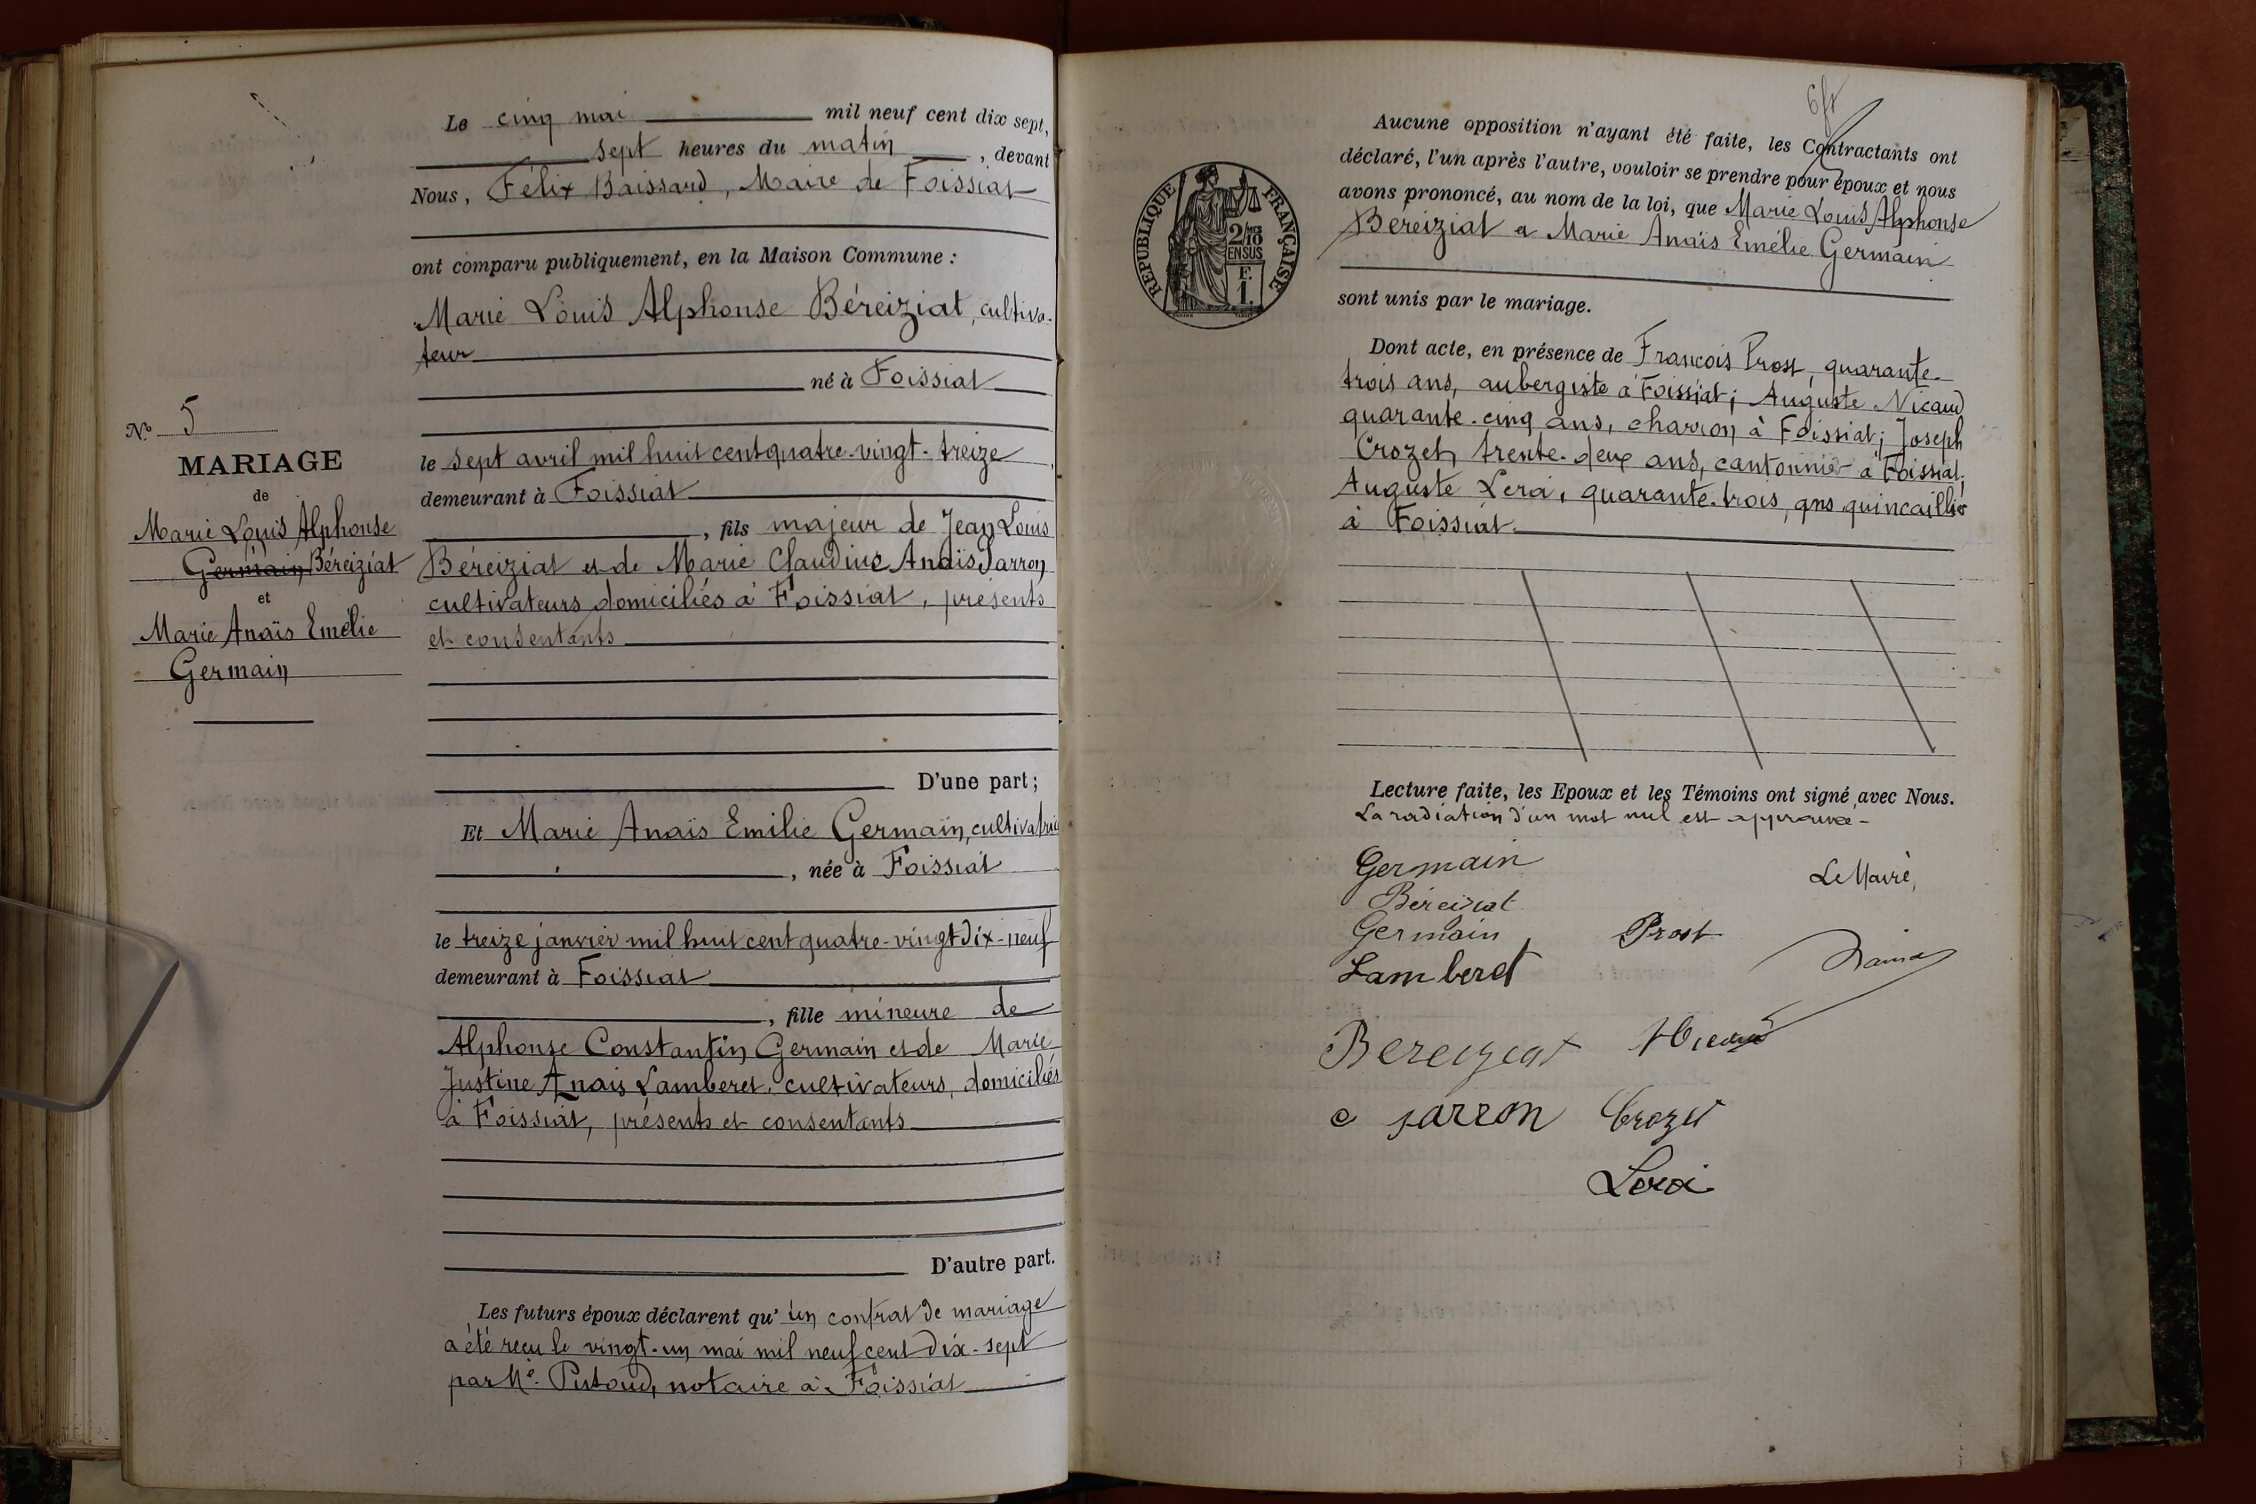 Le cinq mai mil neuf cent dix sept,
sept heures du matin , devant
Nous, Félix Baissard, Maire de Foissiat
ont comparu publiquement, en la Maison Commune :
Marie Louis Alphonse Béreiziat, cultiva-
teur
né à Foissiat
le sept avril mil huit cent quatre-vingt-treize
demeurant à Foissiat
, fils majeur de Jean Louis
Béreiziat et de Marie Claudine Anaïs Sarron
cultivateurs domiciliés à Foissiat, présents
et consentants
D'une part ;
Et Marie Anaïs Emilie Germain, cultivatrice
, née à Foissiat
le treize janvier mil huit cent quatre-vingt dix-neuf
demeurant à Foissiat
, fille mineure de
Alphonse Constantin Germain et de Marie
Justine Anaïs Lamberet, cultivateurs, domiciliés
à Foissiat, présents et consentants
D'autre part.
Les futurs époux déclarent qu' un contrat de mariage
a été reçu le vingt-un mai mil neuf cent dix-sept
par Me notaire à Foissiat
No 5
MARIAGE
de
Marie Louis Alphonse
Germain Béreiziat
et
Marie Anaïs Emélie
Germain
REPUBLIQUE FRANÇAISE
2/10
EN SUS
F.
1.
Aucune opposition n'ayant été faite, les Contractants ont
déclaré, l'un après l'autre, vouloir se prendre pour époux et nous
avons prononcé, au nom de la loi, que Marie Louis Alphonse
Béreiziat a Marie Anaïs Emélie Germain
sont unis par le mariage.
Dont acte, en présence de François Prost, quarante-
trois ans, aubergiste à Foissiat ; Auguste Nicaud
quarante-cinq ans, charron à Foissiat ; Joseph
Crozet, trente-deux ans, cantonnier à Foissiat ;
Auguste Leroi, quarante-trois ans quincaillier
à Foissiat
Lecture faite, les Epoux et les Témoins ont signé avec Nous.
La radiation d'un mot nul est approuvée -
Germain
Le Maire,
Béreiziat
Germain
Prost
Lamberet
Bereiziat
Nicaud
c sarron
Crozet
Leroi